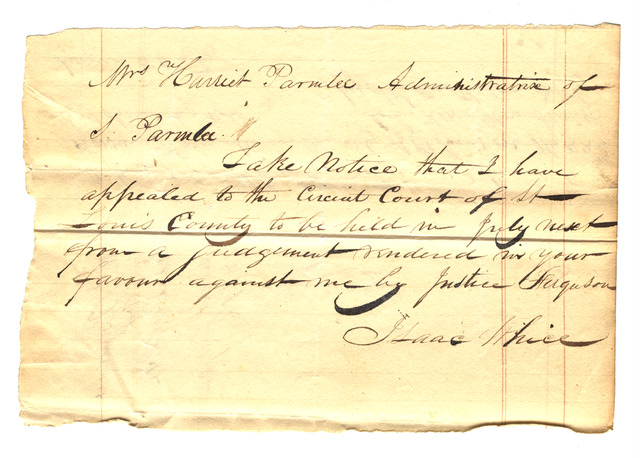 Mrs Harriet Parmlee Administratrix of
S Parmlee
Take Notice that I have
appealed to the Circuit Court of St
Louis County to be held in July next
from a judgement rendered in your
favour against me by Justice Ferguson
Isaac